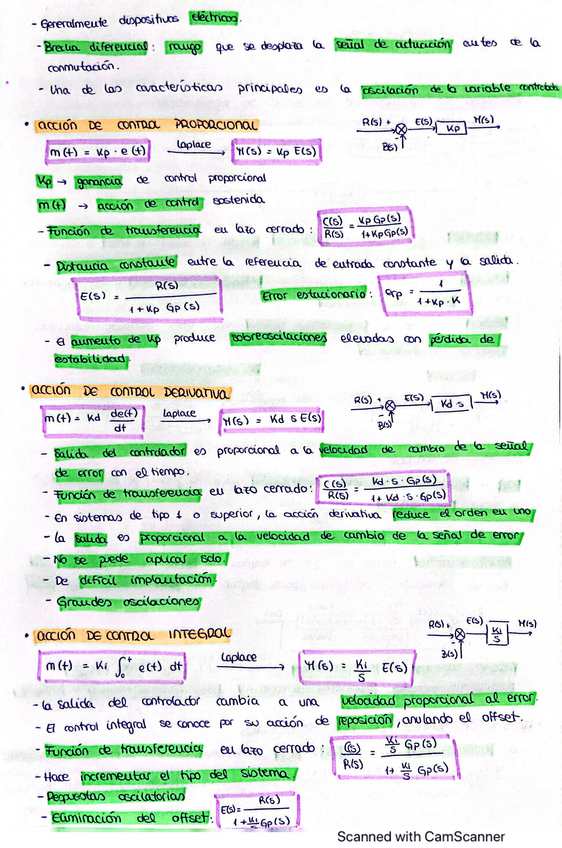 - Generalmente dispositivos eléctricos.
- Brecha diferencial: rango que se desplaza la señal de actuación antes de la
conmutación.
- Una de las características principales es la oscilación de la variable controlada
• ACCIÓN DE CONTROL PROPORCIONAL
R(s) + E(s) Kp M(s)
- B(s)
m(t) = Kp · e(t) Laplace → M(s) = Kp E(s)
Kp → ganancia de control proporcional
m(t) → acción de control sostenida
- Función de transferencia en lazo cerrado: C(s)/R(s) = Kp Gp(s)/1+KpGp(s)
- Distancia constante entre la referencia de entrada constante y la salida.
E(s) = R(s)/1+Kp Gp(s) Error estacionario: erp = 1/1+Kp·K
- El aumento de Kp produce sobreoscilaciones elevadas con pérdida de
estabilidad.
• ACCIÓN DE CONTROL DERIVATIVA
R(s) + E(s) Kd s M(s)
- B(s)
m(t) = Kd de(t)/dt Laplace → M(s) = Kd s E(s)
- Salida del controlador es proporcional a la velocidad de cambio de la señal
de error con el tiempo.
- Función de transferencia en lazo cerrado: C(s)/R(s) = Kd·s·Gp(s)/1+Kd·s·Gp(s)
- En sistemas de tipo 1 o superior, la acción derivativa reduce el orden en uno
- La salida es proporcional a la velocidad de cambio de la señal de error
- No se puede aplicar solo
- De difícil implantación.
- Grandes oscilaciones
• ACCIÓN DE CONTROL INTEGRAL
R(s) + E(s) Ki/s M(s)
- B(s)
m(t) = Ki ∫₀ᵗ e(t) dt Laplace → M(s) = Ki/s E(s)
- La salida del controlador cambia a una velocidad proporcional al error.
- El control integral se conoce por su acción de reposición, anulando el offset.
- Función de transferencia en lazo cerrado: C(s)/R(s) = Ki/s Gp(s)/1+ Ki/s Gp(s)
- Hace incrementar el tipo del sistema
- Respuestas oscilatorias
- Eliminación del offset: E(s) = R(s)/1+Ki/s Gp(s)
Scanned with CamScanner